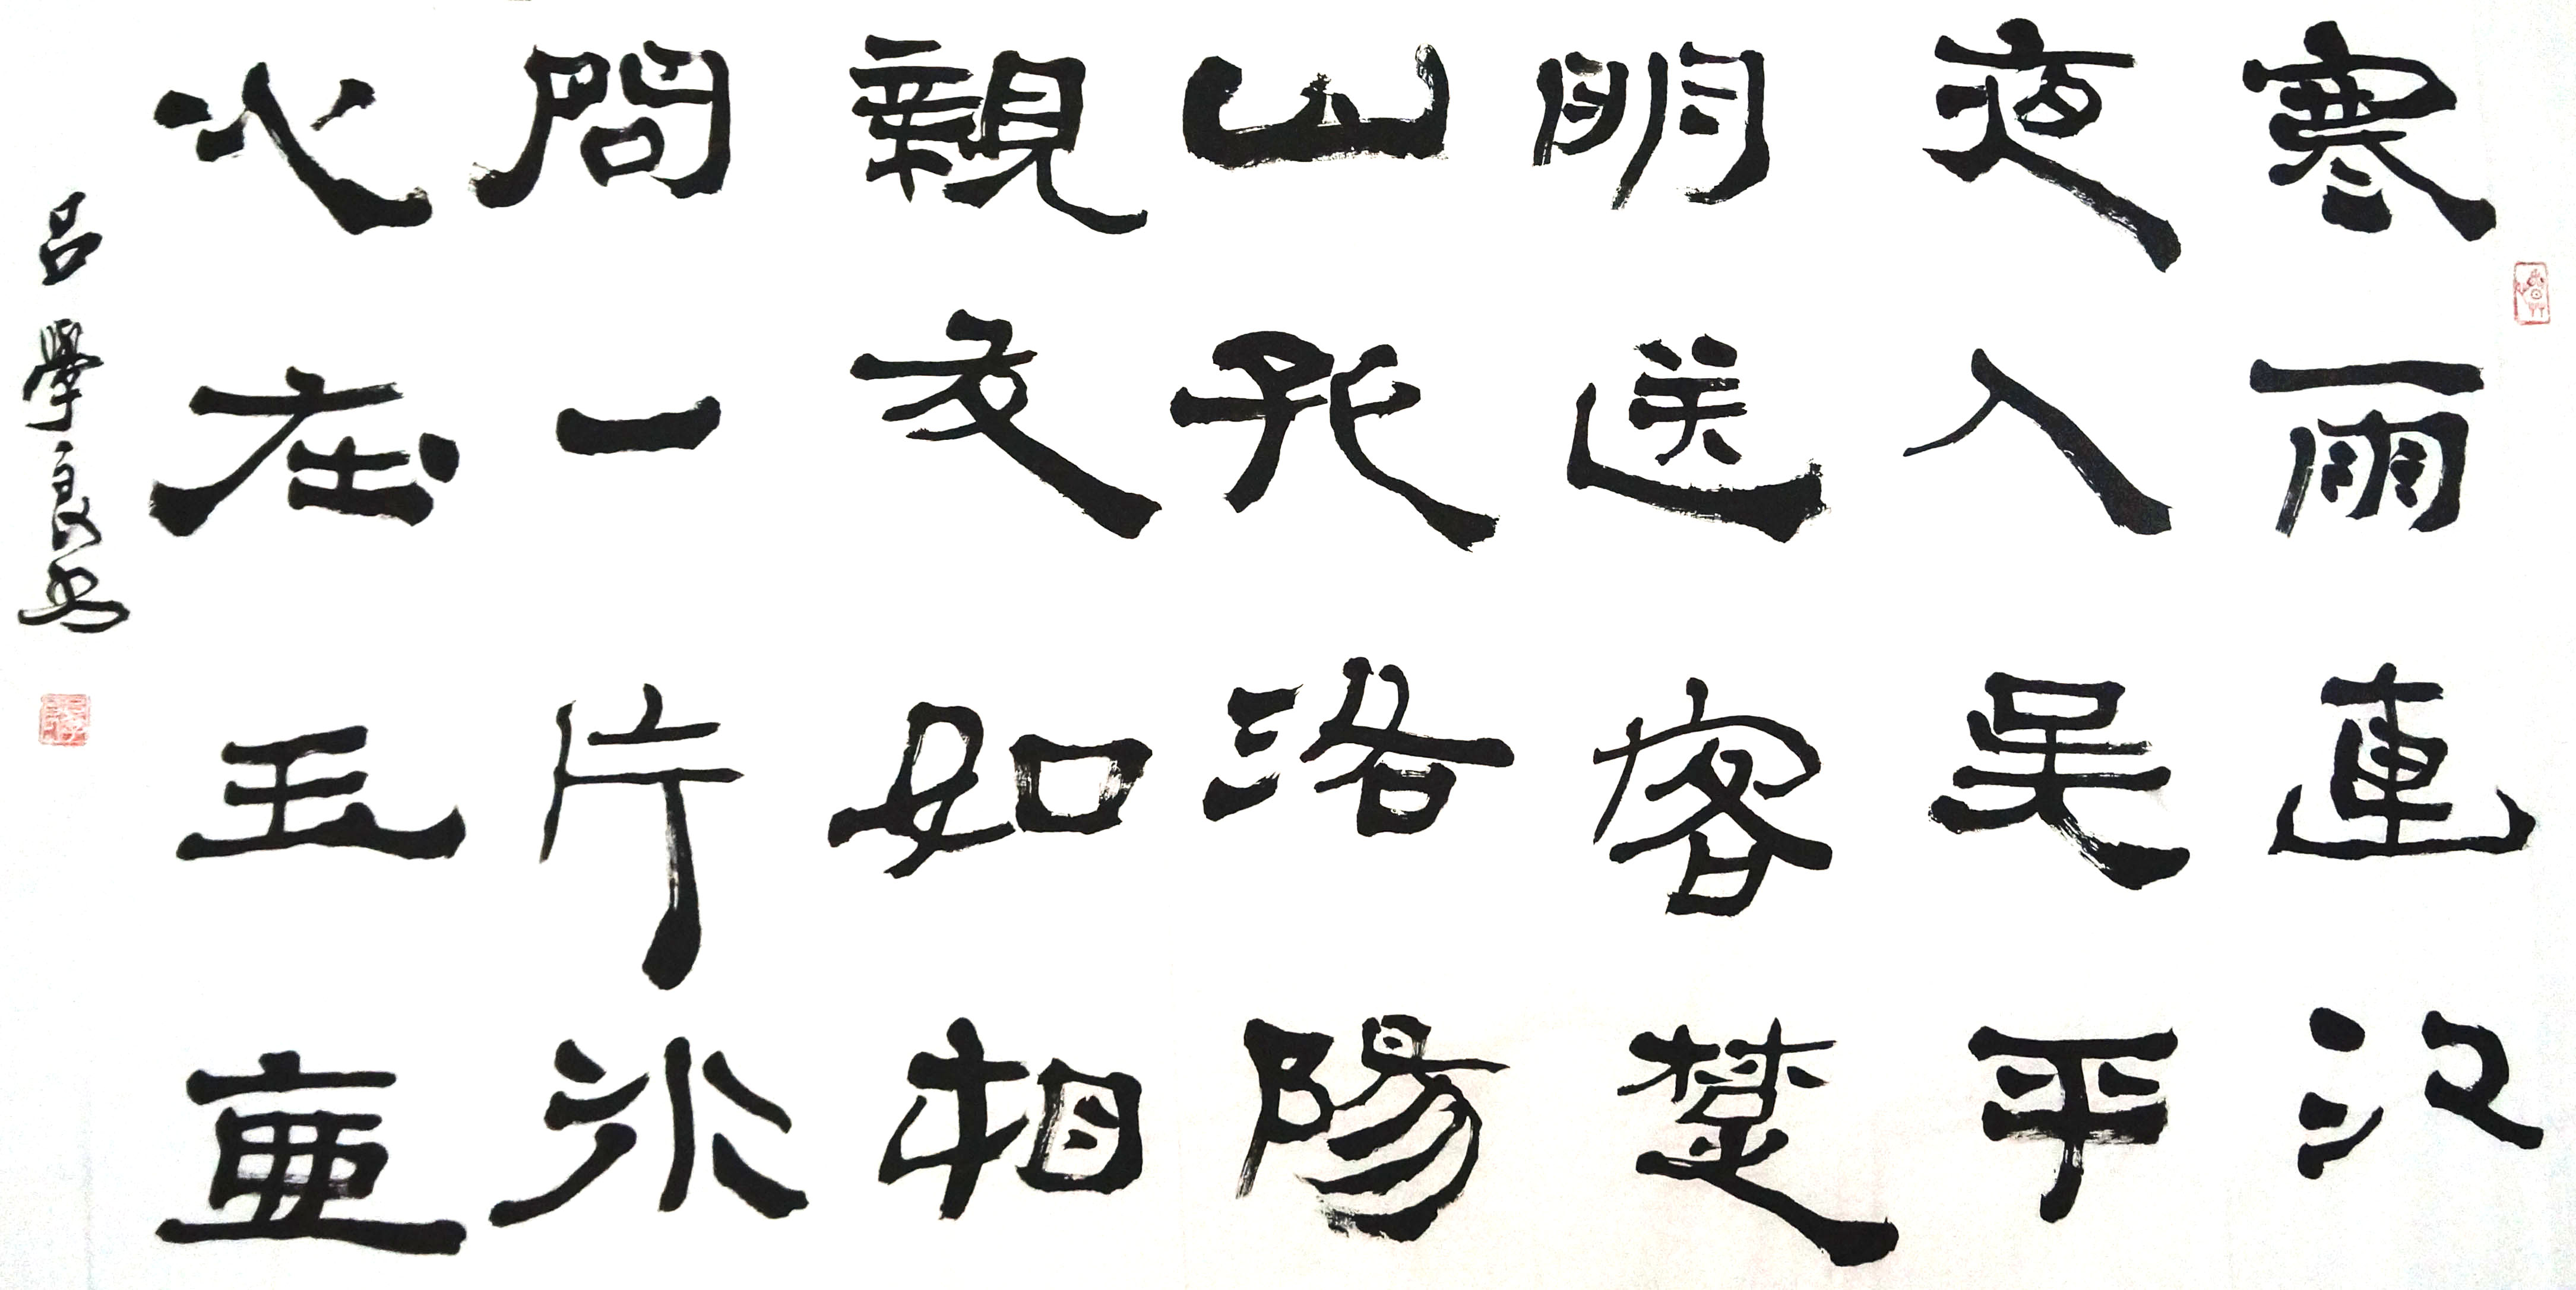 寒雨連江
夜入吴平
明送客楚
山孤洛陽
親友如相
問一片冰
心在玉壺
吕學良书